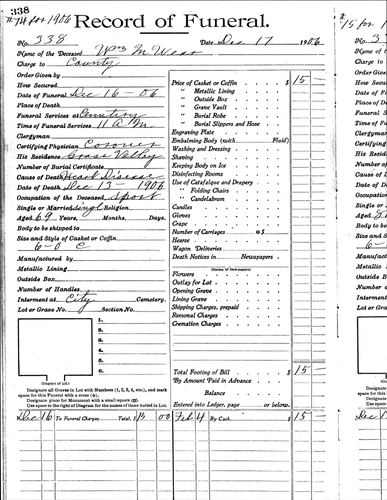 338
#14 for 1906
Record of Funeral.
No. 338 Date Dec 17 1906
Name of the Deceased Wm M West
Charge to County
Order Given by
How Secured
Date of Funeral Dec 16 - 06
Place of Death
Funeral Services at Cemetery
Time of Funeral Services 11 A M
Clergyman
Certifying Physician Coroner
His Residence Grass Valley
Number of Burial Certificate
Cause of Death Heart Disease
Date of Death Dec 13 - 1906
Occupation of the Deceased Sport
Single or Married Singl Religion
Aged 69 Years, Months, Days.
Body to be shipped to
Size and Style of Casket or Coffin
6-0 C
Manufactured by
Metallic Lining
Outside Box
Number of Handles
Interment at City Cemetery.
Lot or Grave No. Section No.
1.
2.
3.
4.
5.
6.
(Diagram of Lot.)
Designate all Graves in Lot with Numbers (1, 2, 3, 4, etc.), and mark
space for this Funeral with a cross (+).
Designate place for Monument with a small square (□).
Use space to the right of Diagram for the names of those buried in Lot.
Price of Casket or Coffin $ 15 —
" Metallic Lining
" Outside Box
" Grave Vault
" Burial Robe
" Burial Slippers and Hose
Engraving Plate
Embalming Body (with Fluid)
Washing and Dressing
Shaving
Keeping Body on Ice
Disinfecting Rooms
Use of Catafalque and Drapery
" Folding Chairs
" Candelabrum
Candles
Gloves
Crape
Number of Carriages @ $
Hearse
Wagon Deliveries
Death Notices in Newspapers
(Names of Newspapers)
Flowers
Outlay for Lot
Opening Grave
Lining Grave
Shipping Charges, prepaid
Removal Charges
Cremation Charges
Total Footing of Bill $ 15 —
By Amount Paid in Advance
Balance
Entered into Ledger, page or below.
Dec 16 To Funeral Charges Total, $ 15 00 Feb 4 By Cash $ 15 —
#15 for